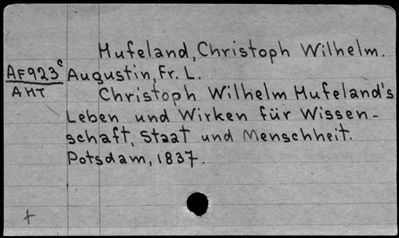 Hufeland, Christoph Wilhelm.
AF923c Augustin, Fr. L.
AHT Christoph Wilhelm Hufeland's
Leben und Wirken für Wissen-
schaft, Staat und Menschheit.
Potsdam, 1837.
+